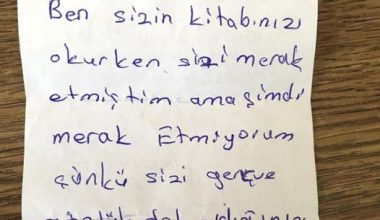 Ben sizin kitabınızı
okurken sizi merak
etmiştim ama şimdi
merak Etmiyorum
çünkü sizi